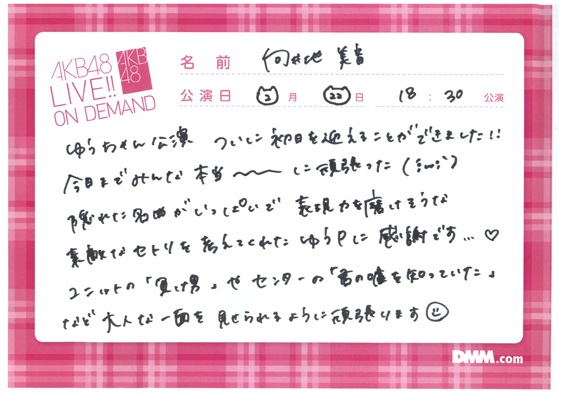 AKB48
LIVE!!
ON DEMAND
AKB
48
名前 向井地 美音
公演日 2月 22日 18:30 公演
ゆうちゃん公演 ついに初日を迎えることができました!!
今日までみんな本当〜〜〜に頑張った(;ω;`)
隠れた名曲がいっぱいで 表現力を磨けそうな
素敵なセトリを考えてくれた ゆうPに 感謝です...♡
ユニットの「負け男」や センターの「君の嘘を知っていた」
など 大人な一面を 見せられるように頑張ります☺
DMM.com